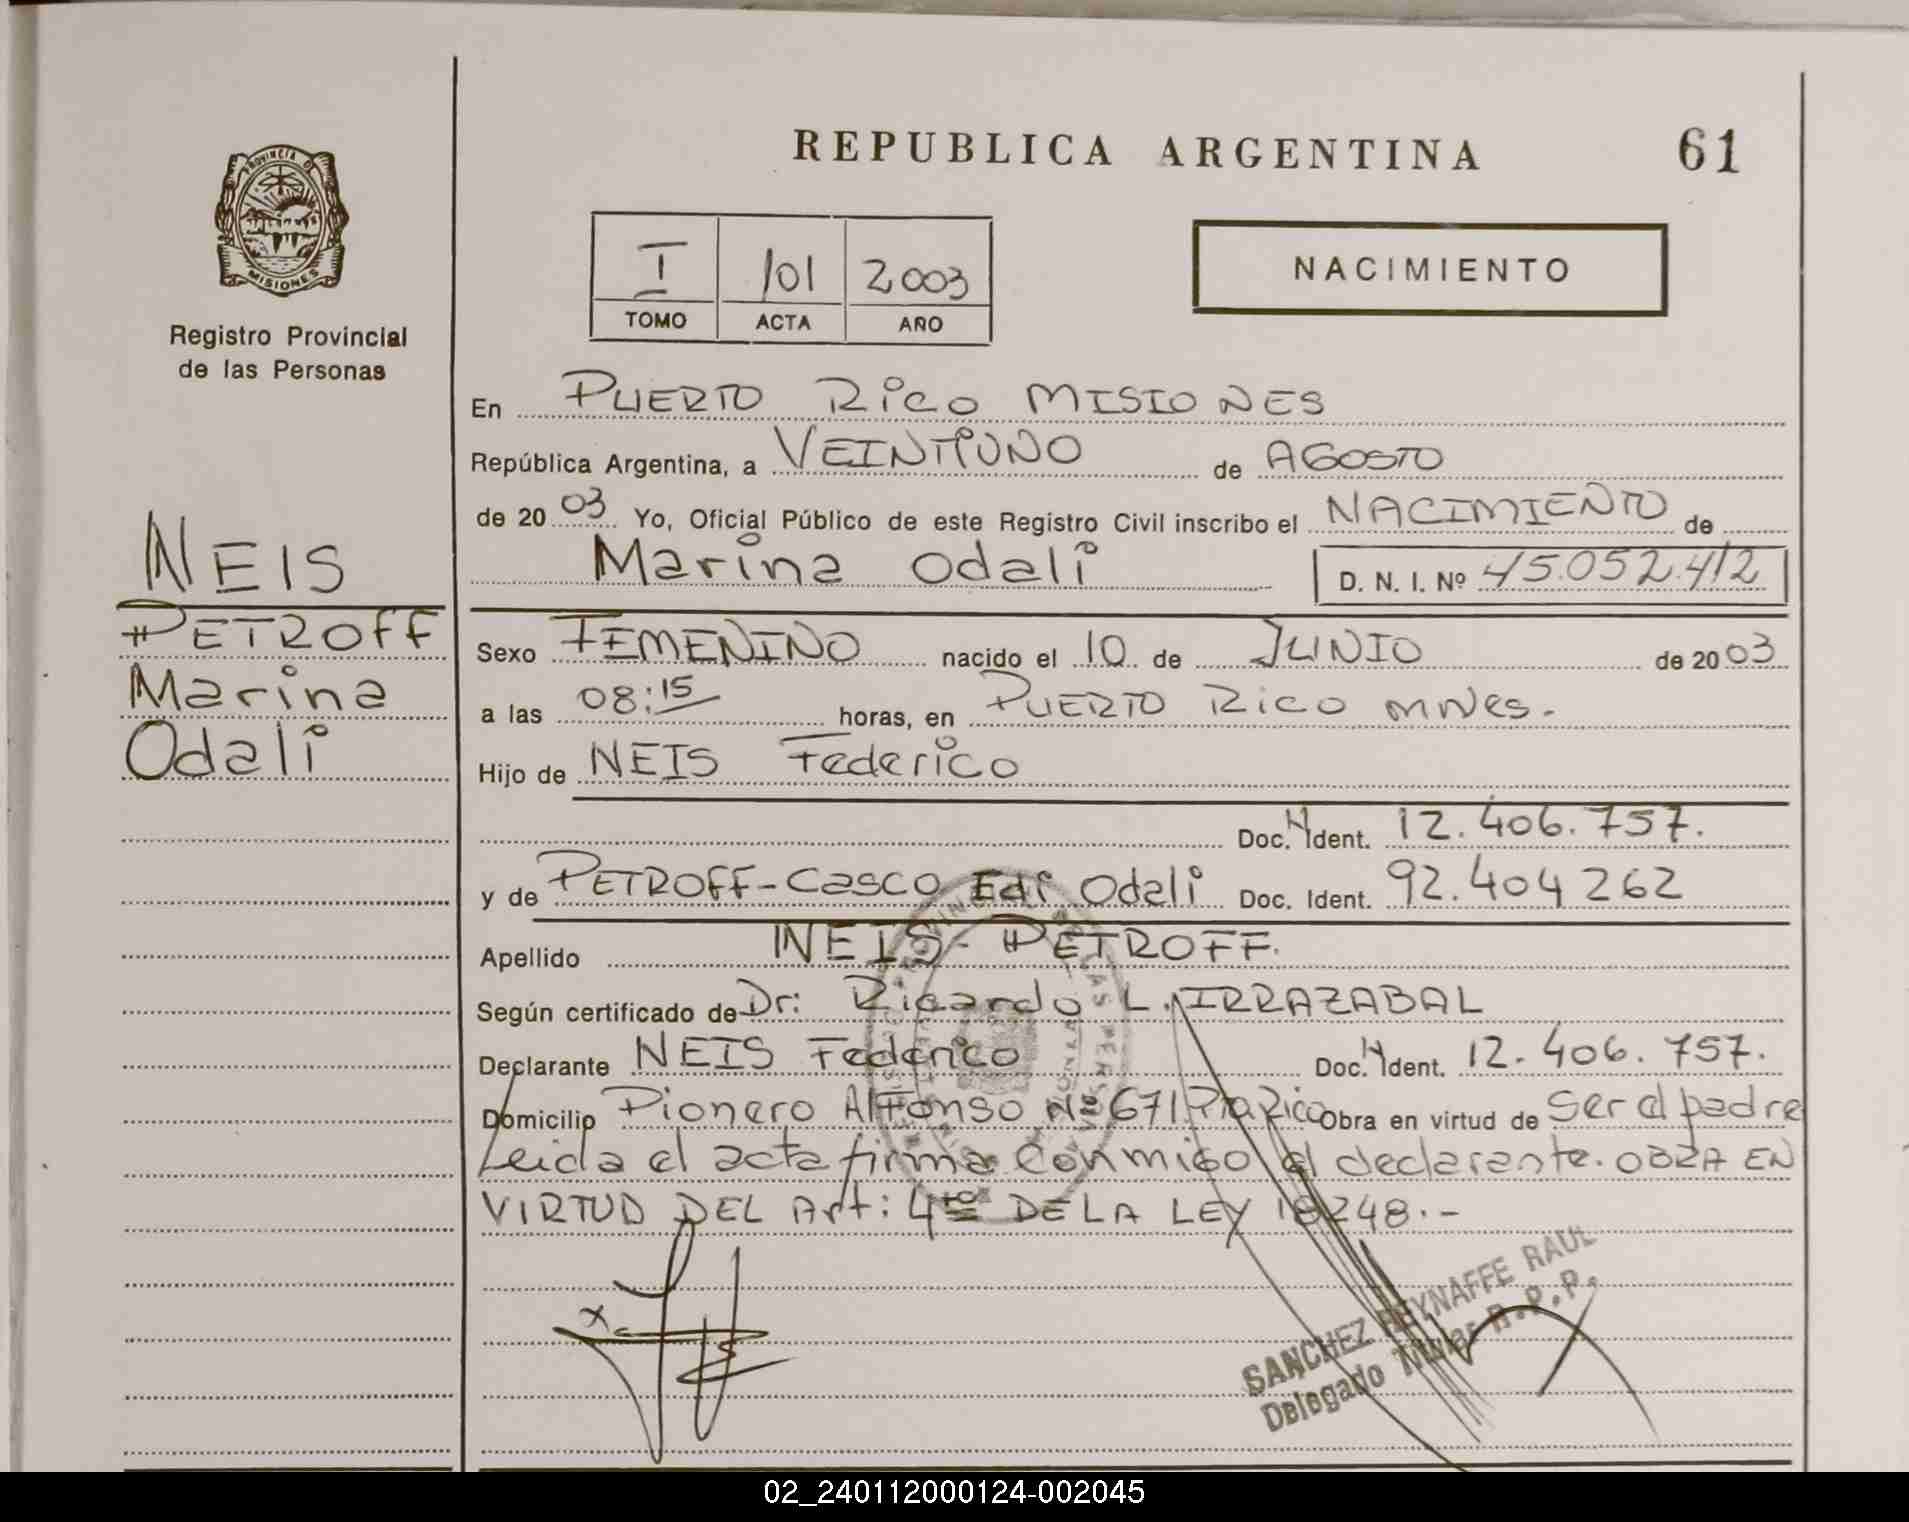 REPUBLICA ARGENTINA
61
PROVINCIA DE
MISIONES
Registro Provincial
de las Personas
I 101 2003
TOMO ACTA AÑO
NACIMIENTO
En PUERTO RICO MISIONES
República Argentina, a VEINTIUNO de AGOSTO
de 2003 Yo, Oficial Público de este Registro Civil inscribo el NACIMIENTO de
Marina Odali D. N. I. Nº 45.052.412
NEIS
PETROFF
Marina
Odali
Sexo FEMENINO nacido el 10 de JUNIO de 2003
a las 08:15 horas, en PUERTO RICO MNES.
Hijo de NEIS Federico
Doc. Ident. 12.406.757.
y de PETROFF-Casco Edi Odali Doc. Ident. 92.404 262
Apellido NEIS - PETROFF.
Según certificado de Dr: Ricardo L. IRRAZABAL
Declarante NEIS Federico Doc. Ident. 12.406.757.
Domicilio Pionero Alfonso Nº 671 Pto Rico Obra en virtud de ser el padre
Leida el acta firma conmigo el declarante. OBRA EN
VIRTUD DEL Art: 4to DE LA LEY 18248.-
SANCHEZ REYNAFFE RAUL
Delegado Titular R.P.P.
02_240112000124-002045